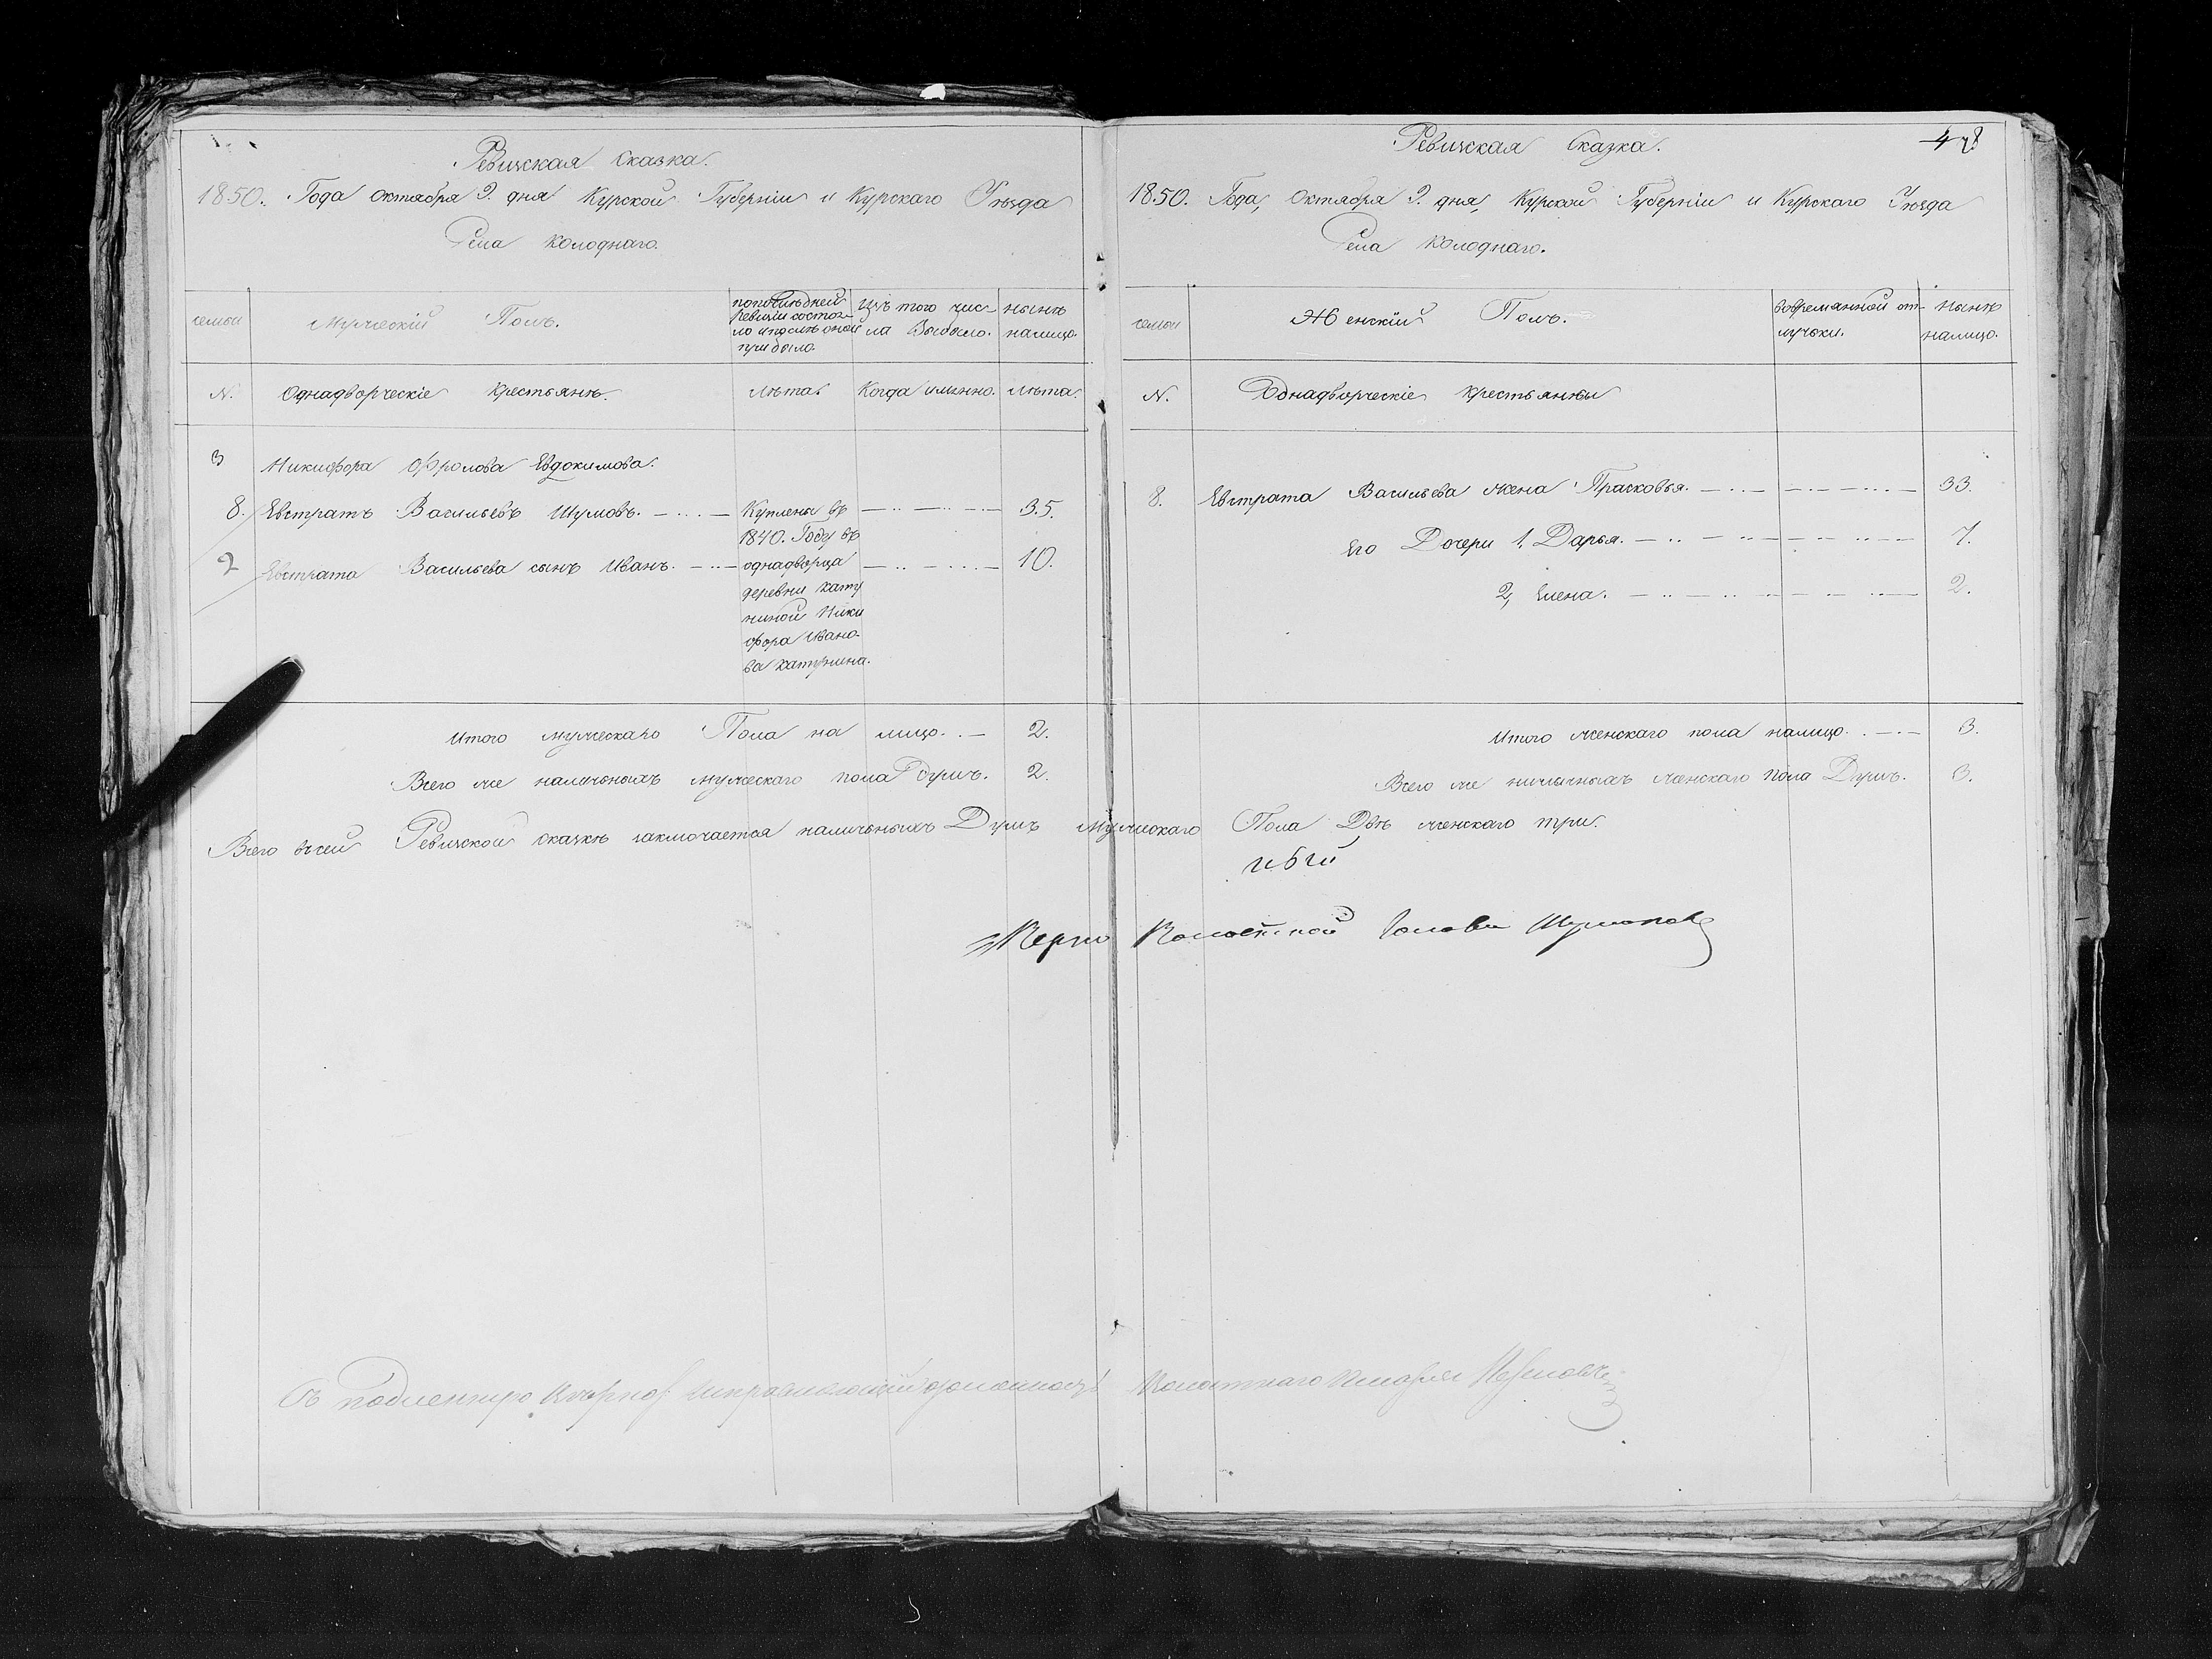 Ревизская Сказка.
1850. Года октября 9. дня Курской Губерніи и Курскаго Уѣзда
Села Колоднаго.
семьи
Мужескій Полъ.
попослѣдней
ревизіи состоя-
ло ипослѣ оной
прибыло.
Изъ того чис-
ла Выбыло.
нынѣ
налицо.
N.
Однадворческіе крестьянѣ.
Лѣта.
Когда именно.
лѣта.
3 Никифора Фролова Евдокимова.
8. Евстратъ Васильевъ Шумовъ. Куплены въ 35.
1840. Году въ
2 Евстрата Васильева сынъ Иванъ. однадворца 10.
деревни кату
ниной Ники
фора Ивано-
ва катунина.
Итого мужескаго Пола на лицо. 2.
Всего же наличныхъ мужескаго пола душъ. 2.
478
Ревизская Сказка.
1850. Года, Октября 9. дня, Курской Губерніи и Курскаго Уѣзда
Села Колоднаго.
семьи
Женскій Полъ.
вовремянной от-
лучьки.
Нынѣ
налицо.
N.
Однадворческіе крестьянки
8. Евстрата Васильева жена Прасковья. 33.
Его Дочери 1, Дарья. 7.
2, Елена. 2.
Итого женскаго пола налицо. 3.
Всего же наличныхъ женскаго пола Душъ. 3.
Всего всей Ревизской сказкѣ заключается наличныхъ Душъ мужескаго Пола Двѣ женскаго три.
Волостной Голова
Съ подленнро Волостнаго Писаря